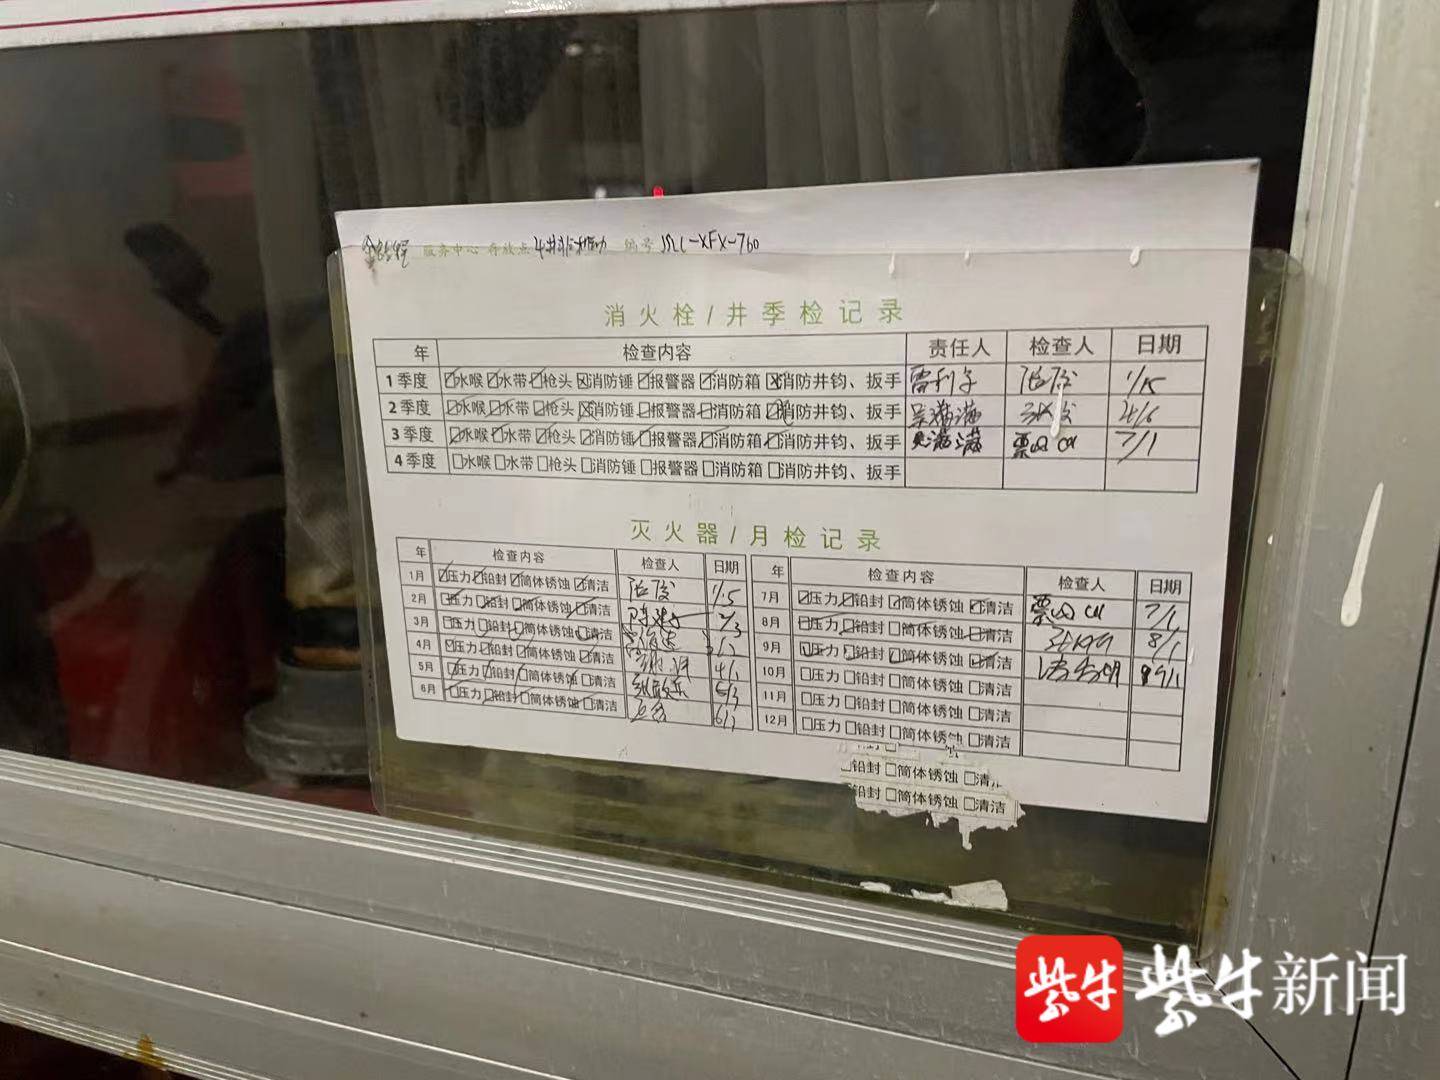 服务中心 存放点 编号 JSLC-XFX-760
消火栓/井季检记录
年 检查内容 责任人 检查人 日期
1季度 ☑水喉☑水带☑枪头☒消防锤☑报警器☑消防箱☒消防井钧、扳手 1/15
2季度 ☑水喉☑水带☑枪头☒消防锤☑报警器☑消防箱☒消防井钧、扳手 吴满满 4/6
3季度 ☑水喉☑水带☑枪头☑消防锤☑报警器☑消防箱☑消防井钧、扳手 吴满满 7/1
4季度 □水喉□水带□枪头□消防锤□报警器□消防箱□消防井钧、扳手
灭火器/月检记录
年 检查内容 检查人 日期 年 检查内容 检查人 日期
1月 ☑压力☑铅封☑筒体锈蚀☑清洁 1/5
2月 ☑压力☑铅封☑筒体锈蚀☑清洁 2/3
3月 ☑压力☑铅封☑筒体锈蚀☑清洁
4月 ☑压力☑铅封☑筒体锈蚀☑清洁 4/1
5月 ☑压力☑铅封☑筒体锈蚀☑清洁
6月 ☑压力☑铅封☑筒体锈蚀☑清洁 6/1
7月 ☑压力☑铅封☑筒体锈蚀☑清洁 7/1
8月 ☑压力☑铅封☑筒体锈蚀☑清洁 8/1
9月 ☑压力☑铅封☑筒体锈蚀☑清洁 9/1
10月 □压力□铅封□筒体锈蚀□清洁
11月 □压力□铅封□筒体锈蚀□清洁
12月 □压力□铅封□筒体锈蚀□清洁
铅封□筒体锈蚀□清
铅封□筒体锈蚀□清洁
紫牛 紫牛新闻